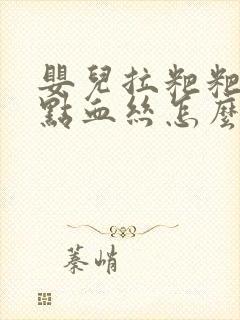 嬰兒拉粑粑
點血絲怎麼
蓁峭